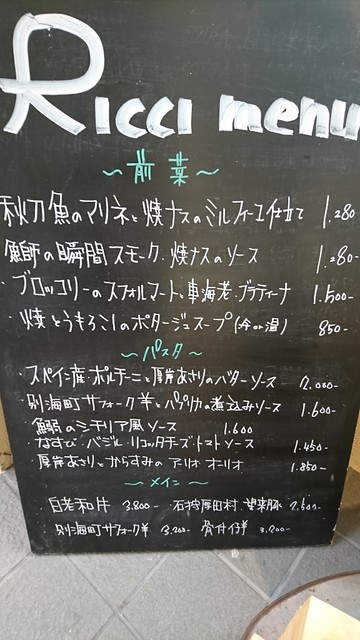 Ricci menu
〜前菜〜
秋刀魚のマリネと焼ナスのミルフィーユ仕立て 1.280-
鰤の瞬間スモーク.焼ナスのソース 1.280-
・ブロッコリーのスフォルマートと車海老.ブラティーナ 1.500-
・焼とうもろこしのポタージュスープ(冷or温) 850-
〜パスタ〜
・スペイン産ポルチーニと厚岸あさりのバターソース 2.000-
・別海町サフォーク羊とパプリカの煮込みソース 1.600-
・鰯のシチリア風ソース 1.600
・なすび.バジル.リコッタチーズ.トマトソース 1.450-
・厚岸あさりとからすみのアリオオーリオ 1.850-
〜メイン〜
・白老和牛 3.800- 石狩厚田村 望来豚 2.500-
・別海町サフォーク羊 3.200- 骨付仔羊 3.200-